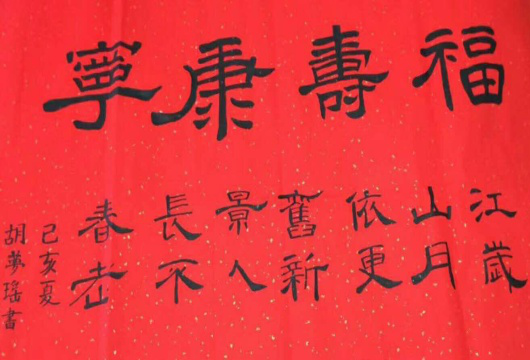 福壽康寧
江山依舊景長春
歲月更新人不老
己亥夏
胡夢瑤書